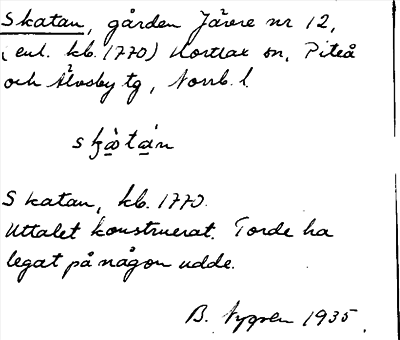 Skatan, gården Järvre nr 12,
(enl. kb. 1770) Hortlax sn, Piteå
och Älvsby tg, Norrb. l.
Skatan, kb. 1770.
Uttalet konstruerat. Torde ha
legat på någon udde.
B. Nygren 1935.